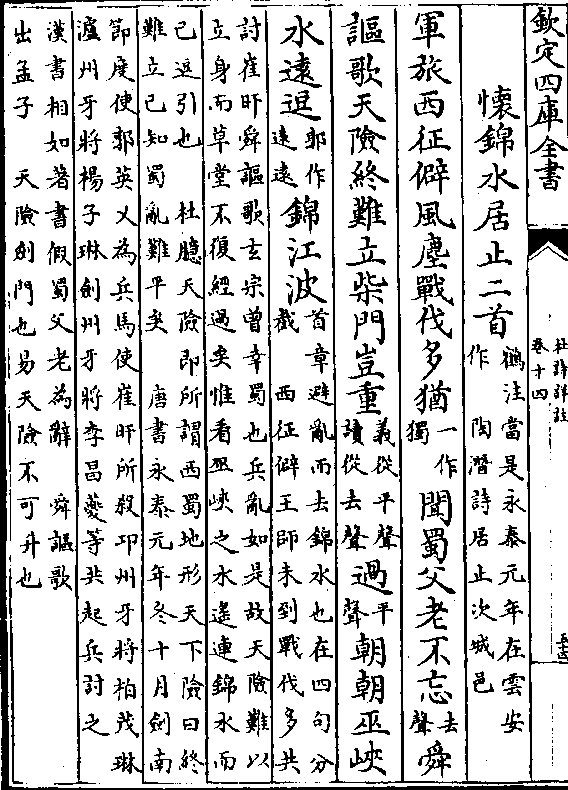 欽定四庫全書
杜詩詳註
卷十四
懷錦水居止二首鶴注當是永泰元年在雲安
作 陶潛詩居止次城邑
軍旅西征僻風塵戰伐多猶一作獨聞蜀父老不忘去聲舜
謳歌天險終難立柴門豈重義從平聲讀從去聲過平聲朝朝巫峽
水遠逗郭作遠遠錦江波首章避亂而去錦水也在四句分
截 西征僻王師未到戰伐多共
討崔旰舜謳歌玄宗曾幸蜀也兵亂如是故天險難以
立身而草堂不復經過矣惟看巫峽之水遙連錦水而
已逗引也 杜臆天險即所謂西蜀地形天下險曰終
難立已知蜀亂難平矣 唐書永泰元年冬十月劍南
節度使郭英乂為兵馬使崔旰所殺邛州牙將柏茂琳
瀘州牙將楊子琳劍州牙將李昌夔等共起兵討之
漢書相如著書假蜀父老為辭 舜謳歌
出孟子 天險劍門也易天險不可升也